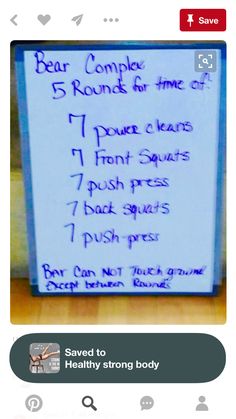 Save
Bear Complex
5 Rounds for time of:
7 power cleans
7 Front Squats
7 push press
7 back squats
7 push-press
Bar Can NOT Touch ground
Except between Rounds
Saved to
Healthy strong body